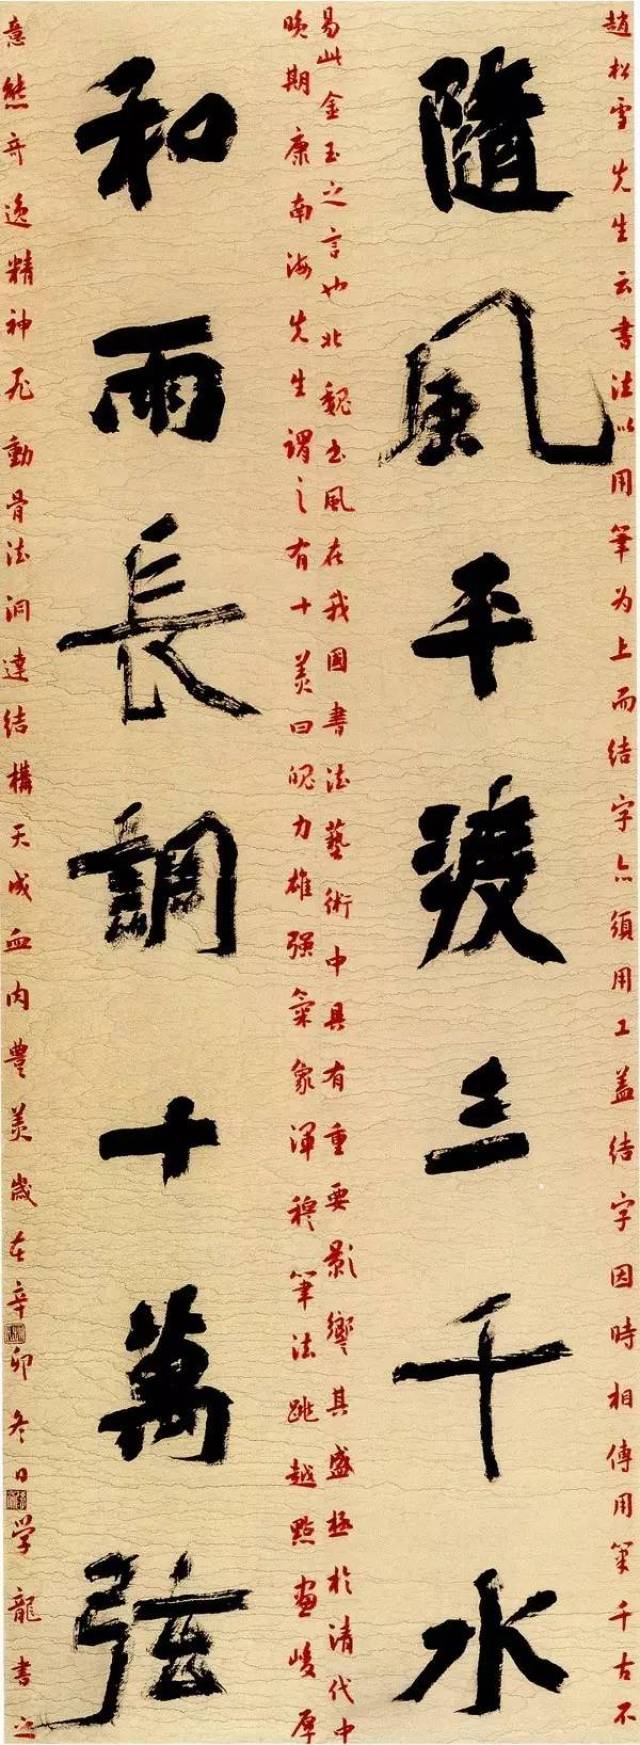 趙松雪先生云書法以用筆为上而結字亦須用工盖結字因時相傳用筆千古不
隨風平渡三千水
易此金玉之言也北魏书風在我國書法藝術中具有重要影響其盛極於清代中
晚期康南海先生謂之有十美曰魄力雄强氣象渾穆筆法跳越點畫峻厚
和雨長調十萬弦
意態奇逸精神飛動骨法洞達結構天成血肉豐美歲在辛卯冬日学龍書之